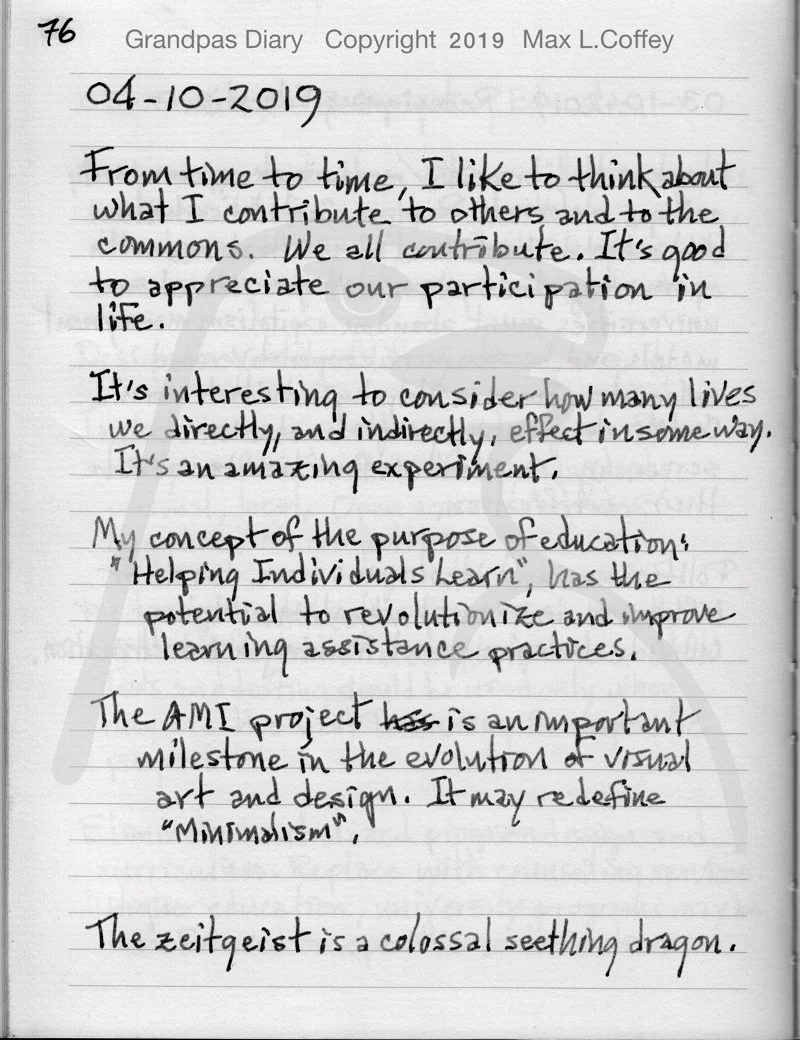 76
Grandpas Diary Copyright 2019 Max L.Coffey
04-10-2019
From time to time, I like to think about
what I contribute to others and to the
commons. We all contribute. It's good
to appreciate our participation in
life.
It's interesting to consider how many lives
we directly, and indirectly, effect in some way.
It's an amazing experiment.
My concept of the purpose of education:
"Helping Individuals Learn", has the
potential to revolutionize and improve
learning assistance practices.
The AMI project has is an important
milestone in the evolution of visual
art and design. It may redefine
"Minimalism".
The zeitgeist is a colossal seething dragon.